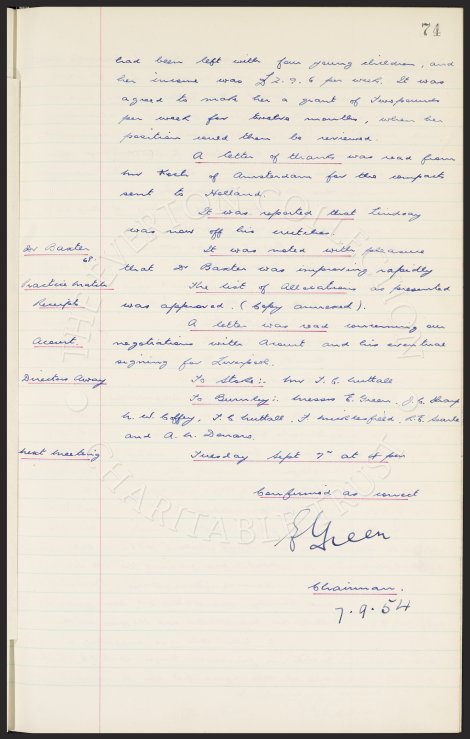 74
had been left with four young children, and
her income was £2.9.6 per week. It was
agreed to make her a grant of Two pounds
per week for twelve months, when her
position would then be reviewed.
A letter of thanks was read from
Mr Koch of Amsterdam for the compacts
sent to Holland.
It was reported that Lindsay
was now off his crutches.
Dr Baxter It was noted with pleasure
that Dr Baxter was improving rapidly
Practice Match The list of Allocations as presented
Receipts was approved. (Copy annexed).
A letter was read concerning our
Acourt. negotiations with Acourt and his eventual
signing for Liverpool.
Directors Away To Stoke:- Mr T. C. Nuttall
To Burnley:- Messrs E. Green, J. C. Sharp
N. W. Coffey, T. C. Nuttall, F. Micklesfield, R. E. Searle
and A. N. Denaro.
Next Meeting Tuesday Sept 7th at 4 pm
Confirmed as correct
E Green
Chairman.
7.9.54
THE EVERTON COLLECTION
CHARITABLE TRUST